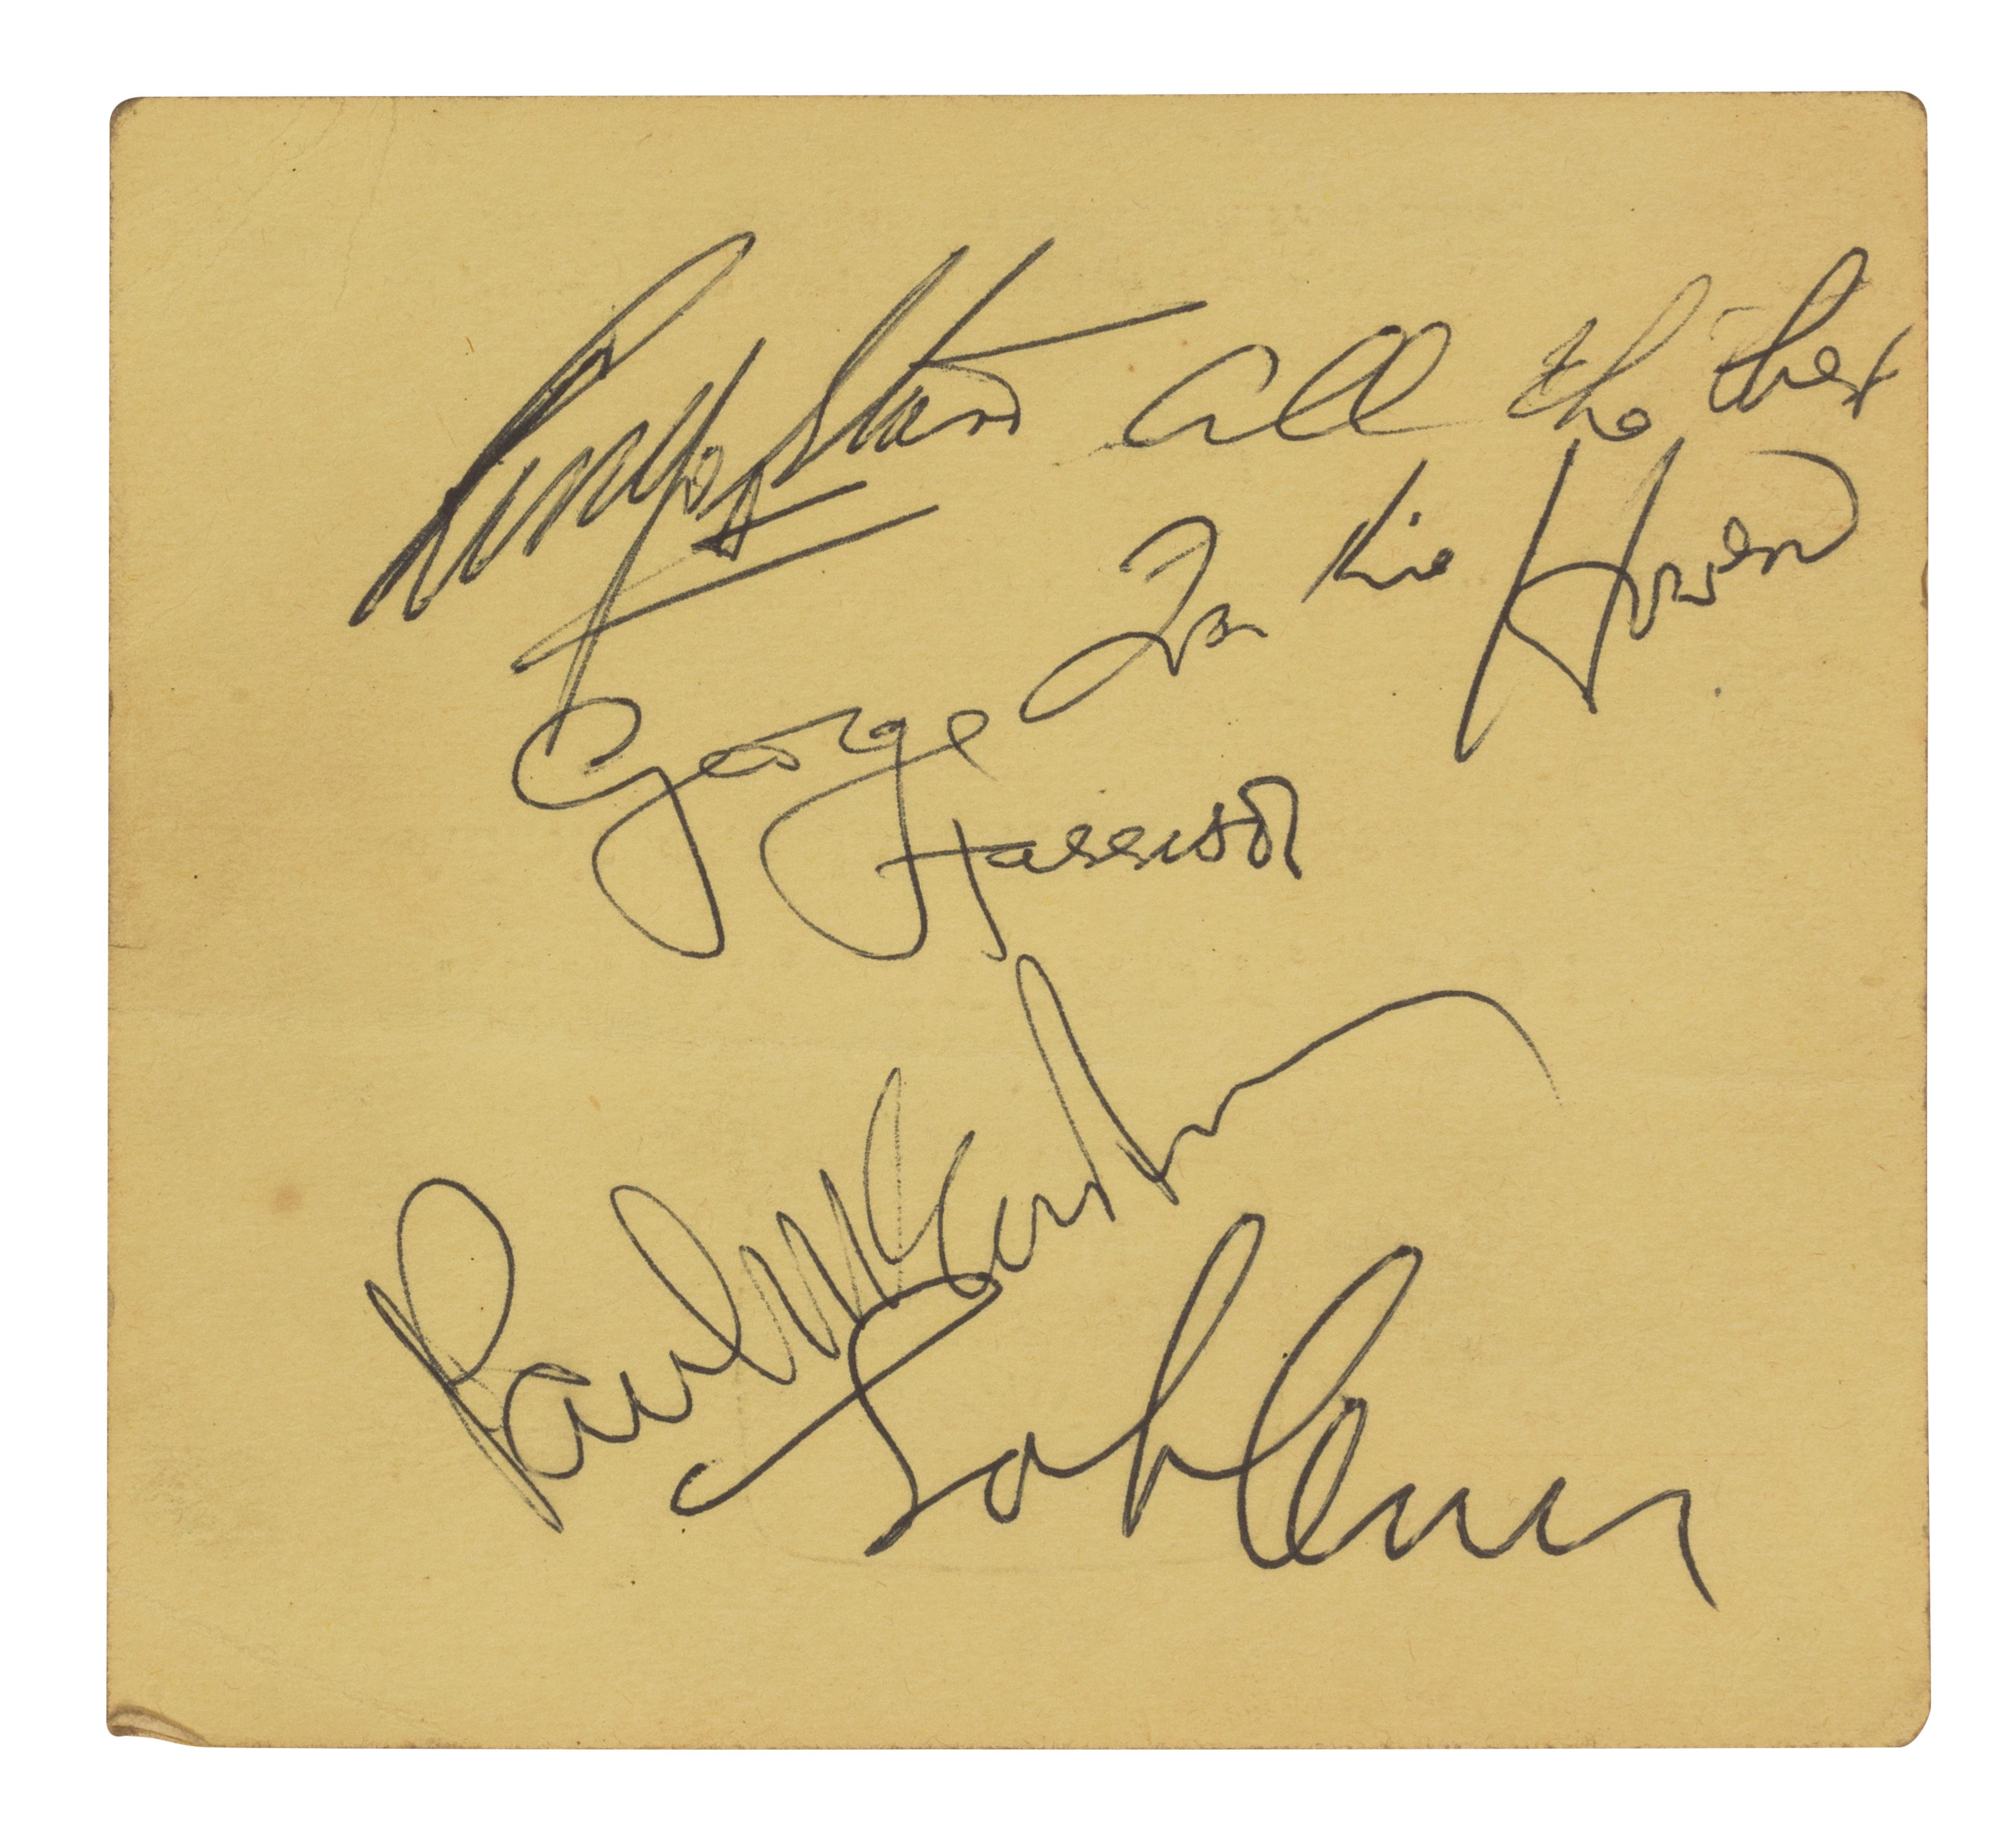 Ringo Starr all the best
George
Harrison
Paul McCartney
John Lennon